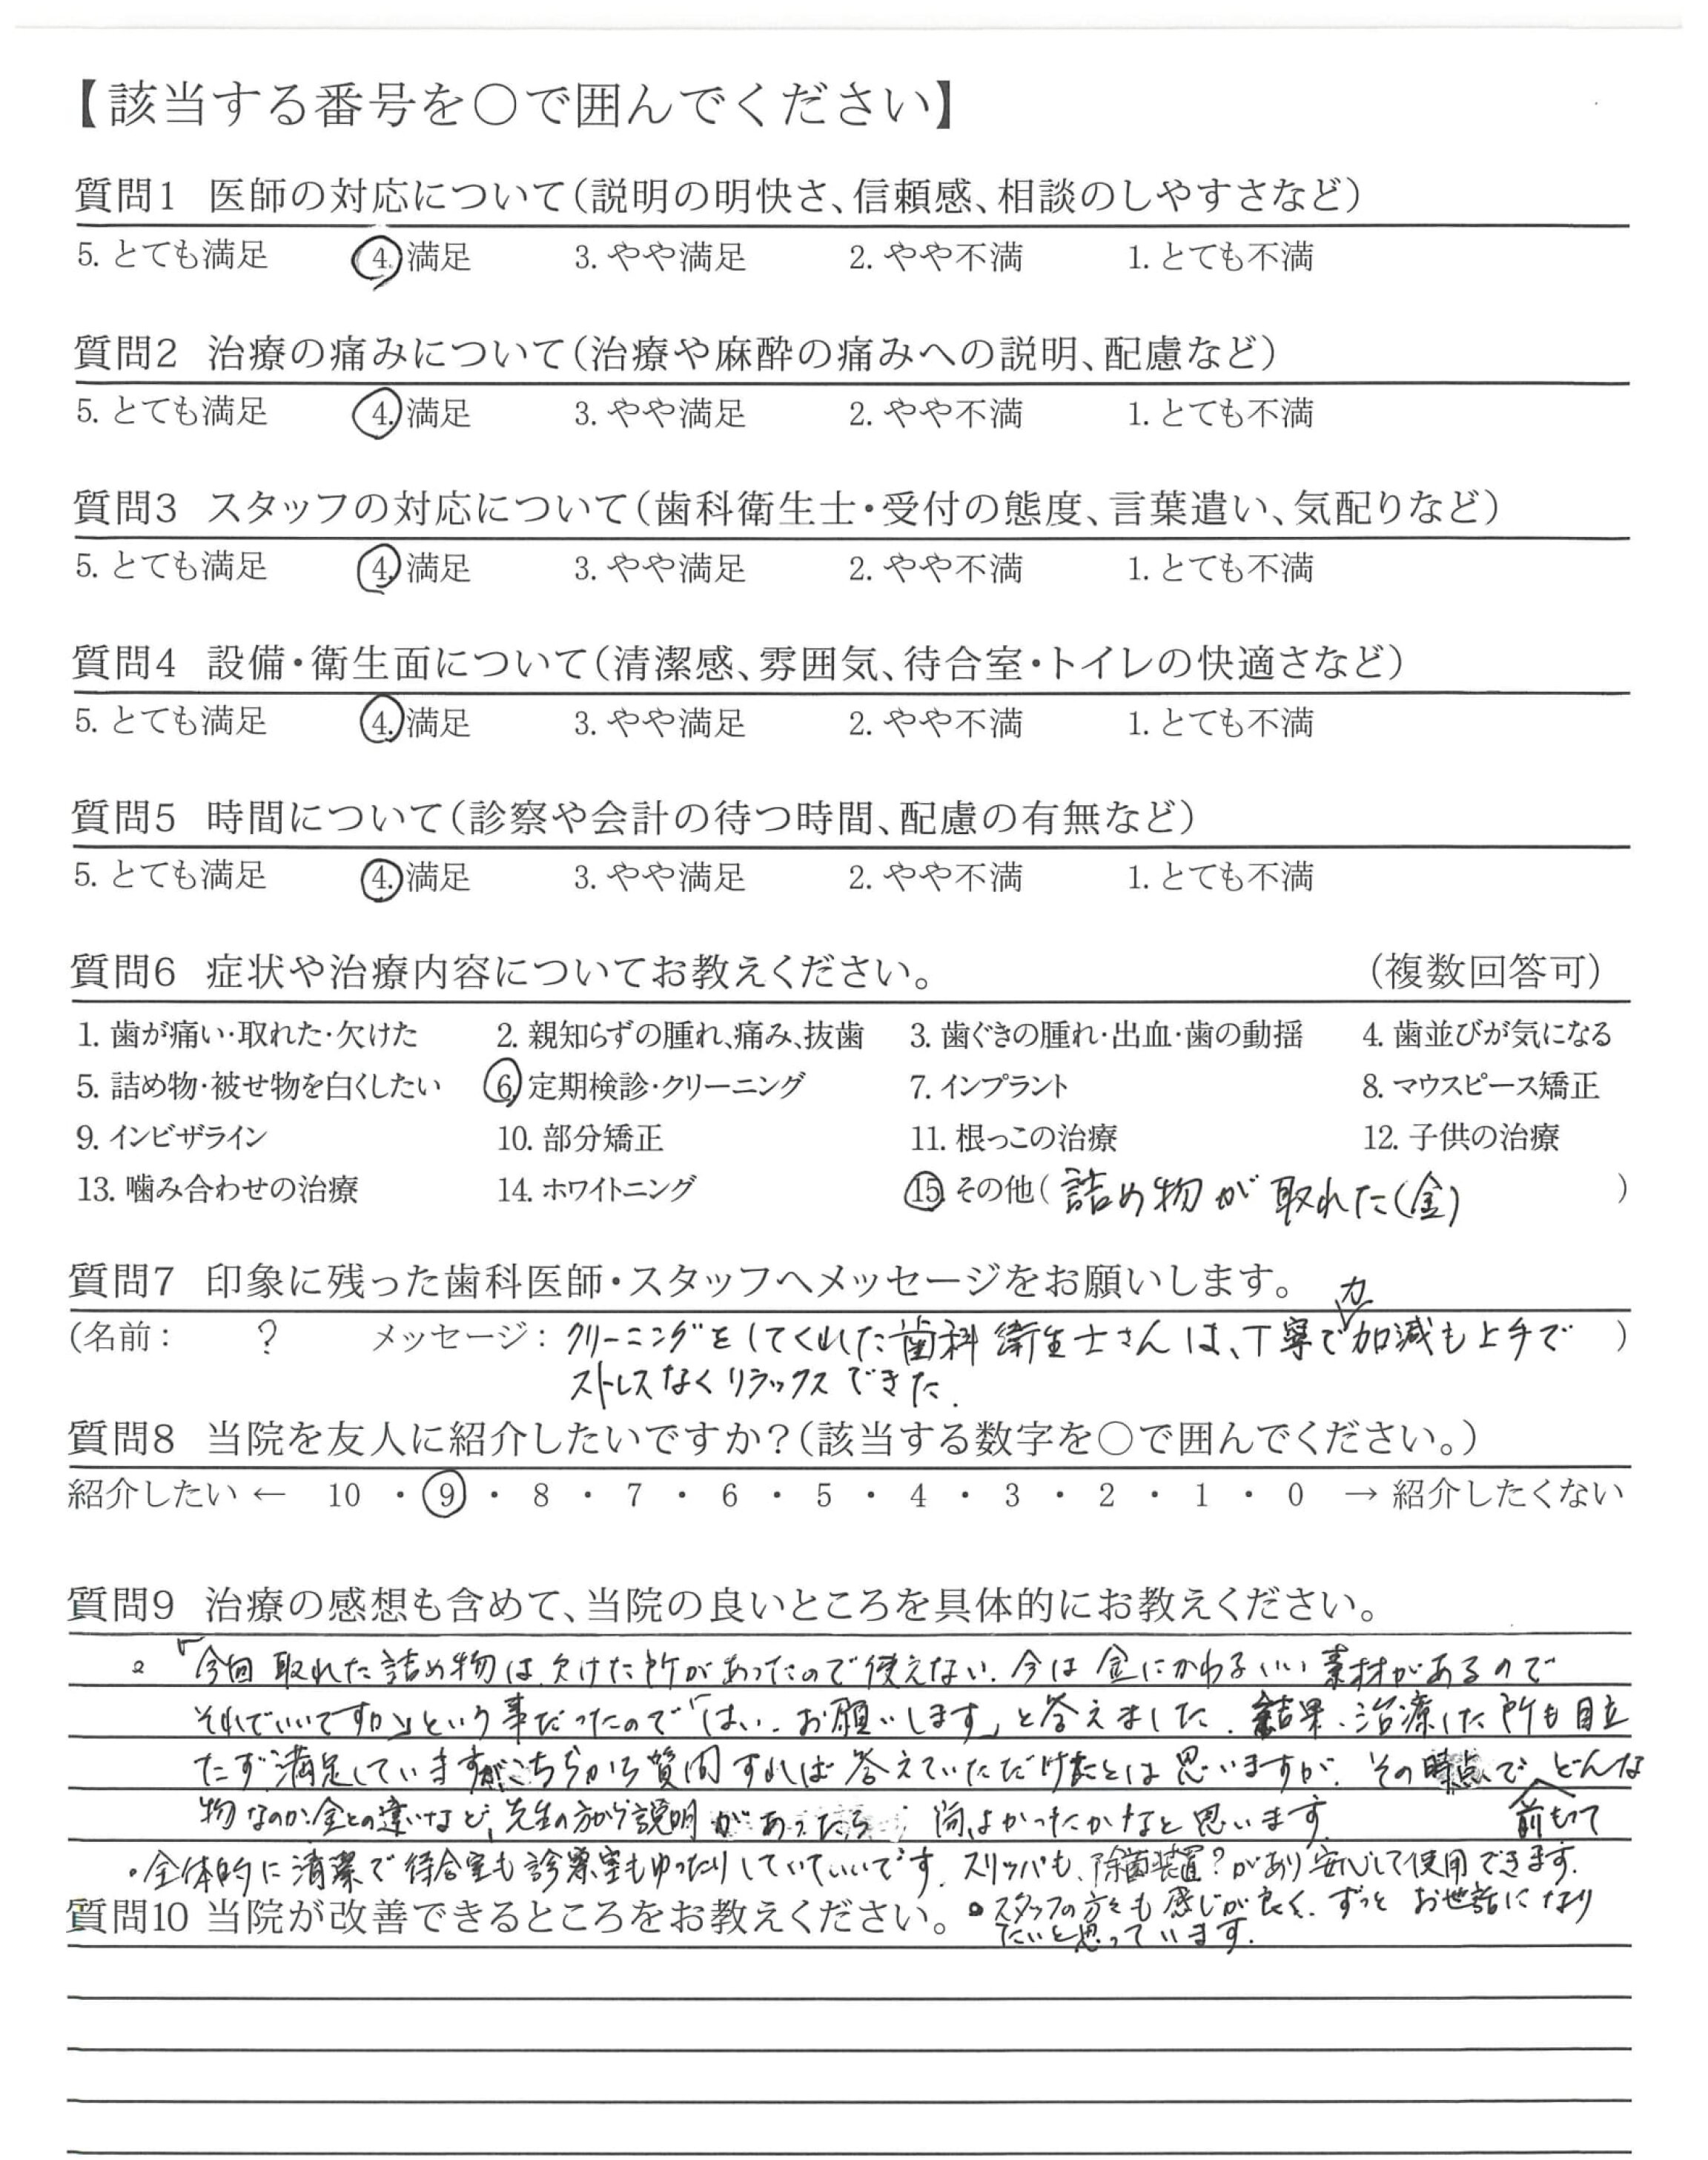 【該当する番号を○で囲んでください】
質問1 医師の対応について(説明の明快さ、信頼感、相談のしやすさなど)
5. とても満足 4. 満足 3. やや満足 2. やや不満 1. とても不満
質問2 治療の痛みについて(治療や麻酔の痛みへの説明、配慮など)
5. とても満足 4. 満足 3. やや満足 2. やや不満 1. とても不満
質問3 スタッフの対応について(歯科衛生士・受付の態度、言葉遣い、気配りなど)
5. とても満足 4. 満足 3. やや満足 2. やや不満 1. とても不満
質問4 設備・衛生面について(清潔感、雰囲気、待合室・トイレの快適さなど)
5. とても満足 4. 満足 3. やや満足 2. やや不満 1. とても不満
質問5 時間について(診察や会計の待つ時間、配慮の有無など)
5. とても満足 4. 満足 3. やや満足 2. やや不満 1. とても不満
質問6 症状や治療内容についてお教えください。 (複数回答可)
1. 歯が痛い・取れた・欠けた 2. 親知らずの腫れ、痛み、抜歯 3. 歯ぐきの腫れ・出血・歯の動揺 4. 歯並びが気になる
5. 詰め物・被せ物を白くしたい 6. 定期検診・クリーニング 7. インプラント 8. マウスピース矯正
9. インビザライン 10. 部分矯正 11. 根っこの治療 12. 子供の治療
13. 噛み合わせの治療 14. ホワイトニング 15. その他( 詰め物が取れた(金) )
質問7 印象に残った歯科医師・スタッフへメッセージをお願いします。
(名前: ? メッセージ: クリーニングをしてくれた歯科衛生士さんは、丁寧で力加減も上手で )
ストレスなくリラックスできた.
質問8 当院を友人に紹介したいですか?(該当する数字を○で囲んでください。)
紹介したい ← 10 ・ 9 ・ 8 ・ 7 ・ 6 ・ 5 ・ 4 ・ 3 ・ 2 ・ 1 ・ 0 → 紹介したくない
質問9 治療の感想も含めて、当院の良いところを具体的にお教えください。
「今回取れた詰め物は、欠けた所があったので使えない. 今は金にかわるいい素材があるので
それでいいですか」という事だったので「はい. お願いします」と答えました. 結果、治療した所も目立
たず満足していますがこちらから質問すれば答えていただけたとは思いますが、その時点で前もってどんな
物なのか、金との違いなど、先生の方から説明があったら尚よかったかなと思います.
・全体的に清潔で待合室も診察室もゆったりしていていいです. スリッパも、除菌装置?があり安心して使用できます.
質問10 当院が改善できるところをお教えください。
・スタッフの方々も感じが良く、ずっとお世話になり
たいと思っています.